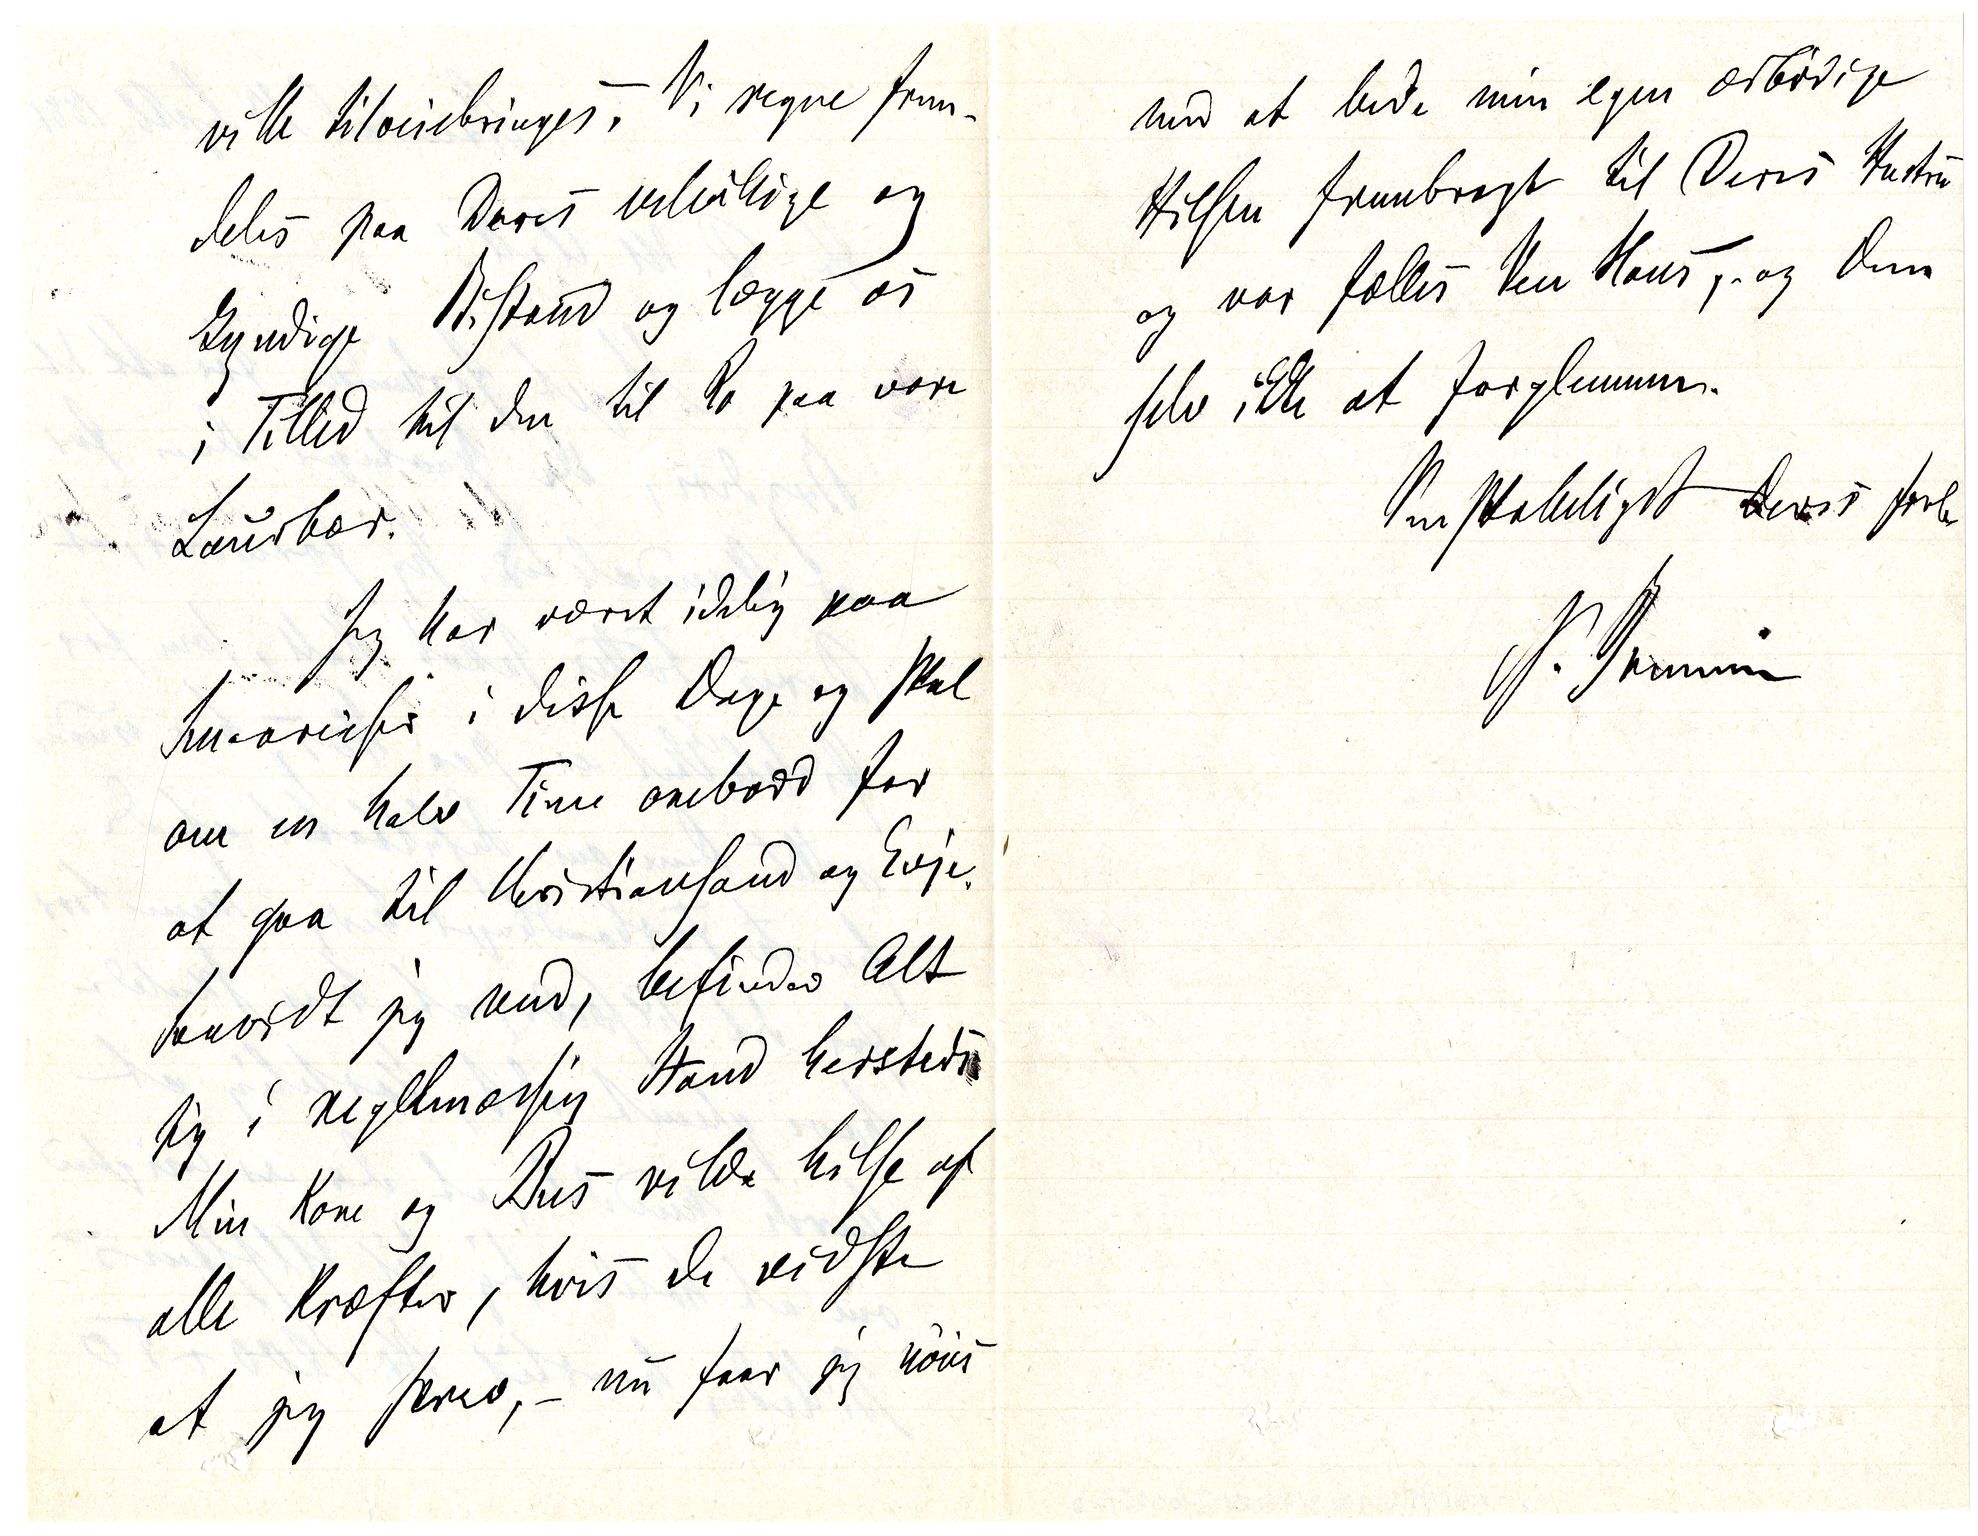 ville tilveiebringes. Vi regne frem-
deles paa Deres velvillige og
kyndige Bistand og lægge os
i Tillid til den til Ro paa vore
Laurbær.
Jeg har været idelig paa
Smaareiser i disse Dage og skal
om en halv Time ombord for
at gaa til Christiansand og Evje.
Saavidt jeg ved, befinder Alt
sig i reglemæssig Stand hersteds
Min Kone og Bus vilde hilse af
alle Kræfter, hvis de vidste
at jeg skrev, – nu faar jeg nöies
med at bede min egen ærbödige
Hilsen frembragt til Deres Hustru
og vor fælles Ven Hans, – og Dem
selv ikke at forglemme.
Venskabeligst Deres forb.